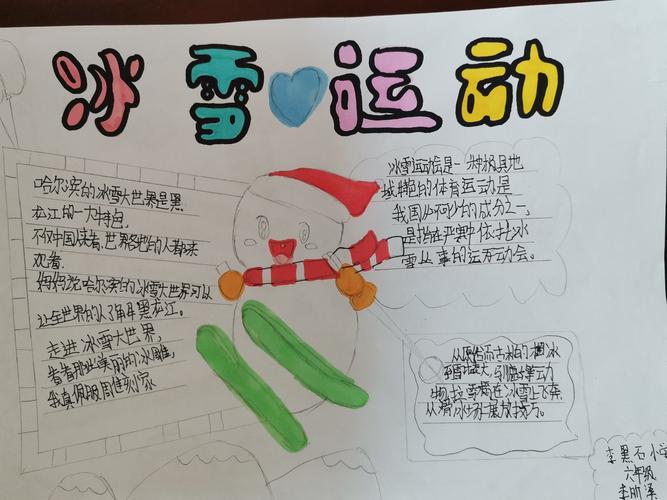 冰雪运动
哈尔滨的冰雪大世界是黑
龙江的一大特色,
不仅中国读者,世界各地的人都来
观看.
妈妈说哈尔滨的冰雪大世界可以
让全世界的人了解黑龙江。
走进冰雪大世界,
看着那些美丽的冰雕,
我真佩服
冰雪运动是一种极具地
域特色的体育运动是
我国必不可少的成分之一,
是指在严寒中依托冰
雪从事的运动会。
从原始而古朴的
运动
拉雪橇在冰雪上飞奔,
从滑冰
李黑石小学
六年级
李